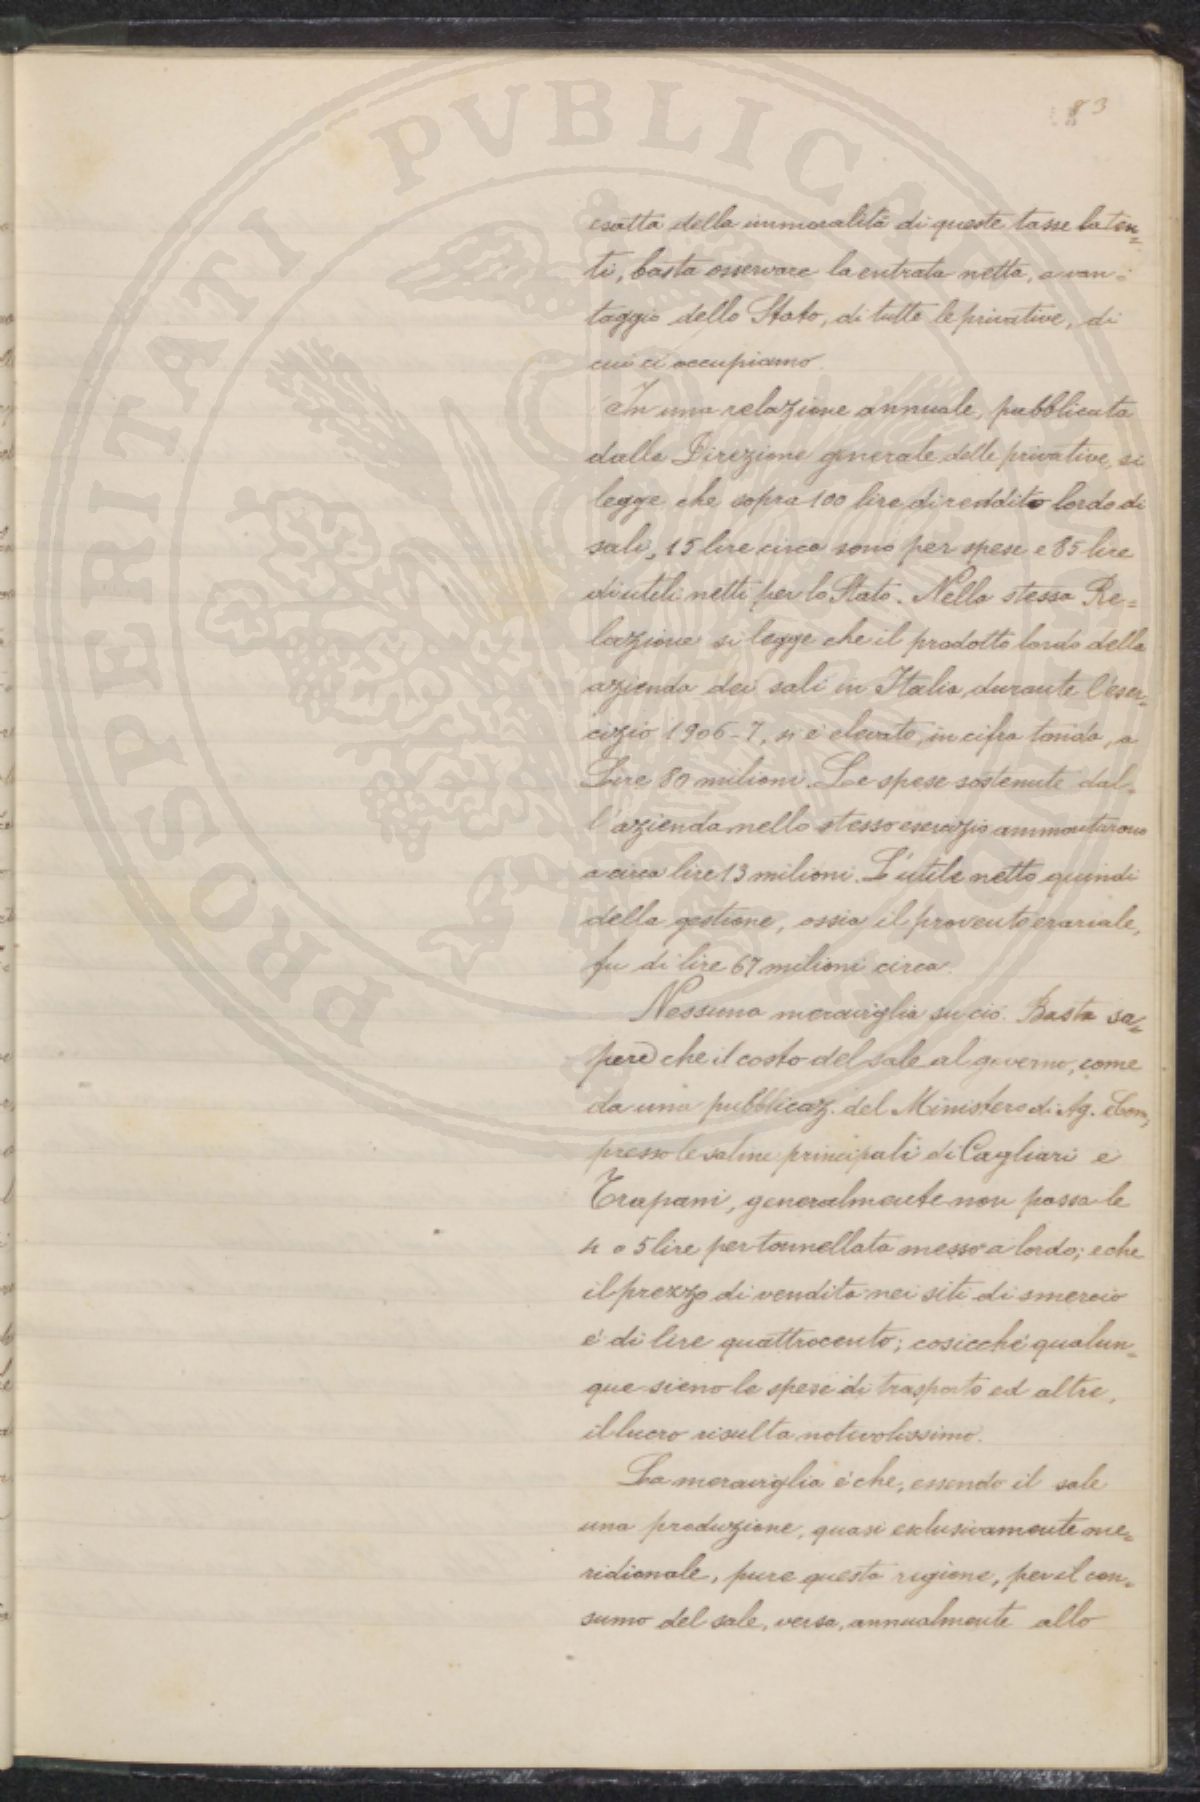 83
PROSPERITATI PVBLICAE
esatta della immoralità di queste tasse laten=
ti, basta osservare la entrata netta, a van=
taggio dello Stato, di tutte le privative, di
cui ci occupiamo.
In una relazione annuale, pubblicata
dalla Direzione generale delle privative, si
legge che sopra 100 lire di reddito lordo di
sali, 15 lire circa sono per spese e 85 lire
di utili netti per lo Stato. Nella stessa Re=
lazione si legge che il prodotto lordo della
azienda dei sali in Italia, durante l'eser=
cizio 1906-7, si è elevato, in cifra tonda, a
Lire 80 milioni. Le spese sostenute dal=
l'azienda nello stesso esercizio ammontarono
a circa lire 13 milioni. L'utile netto quindi
della gestione, ossia il provento erariale,
fu di lire 67 milioni circa.
Nessuna meraviglia su ciò. Basta sa=
pere che il costo del sale al governo, come
da una pubblicaz. del Ministero di Ag. e Com,
presso le saline principali di Cagliari e
Trapani, generalmente non passa le
4 o 5 lire per tonnellata messo a bordo; e che
il prezzo di vendita nei siti di smercio
è di lire quattrocento; cosicché qualun=
que sieno le spese di trasporto ed altre,
il lucro risulta notevolissimo.
La meraviglia è che, essendo il sale
una produzione, quasi esclusivamente me=
ridionale, pure questa regione, per il con=
sumo del sale, versa, annualmente allo